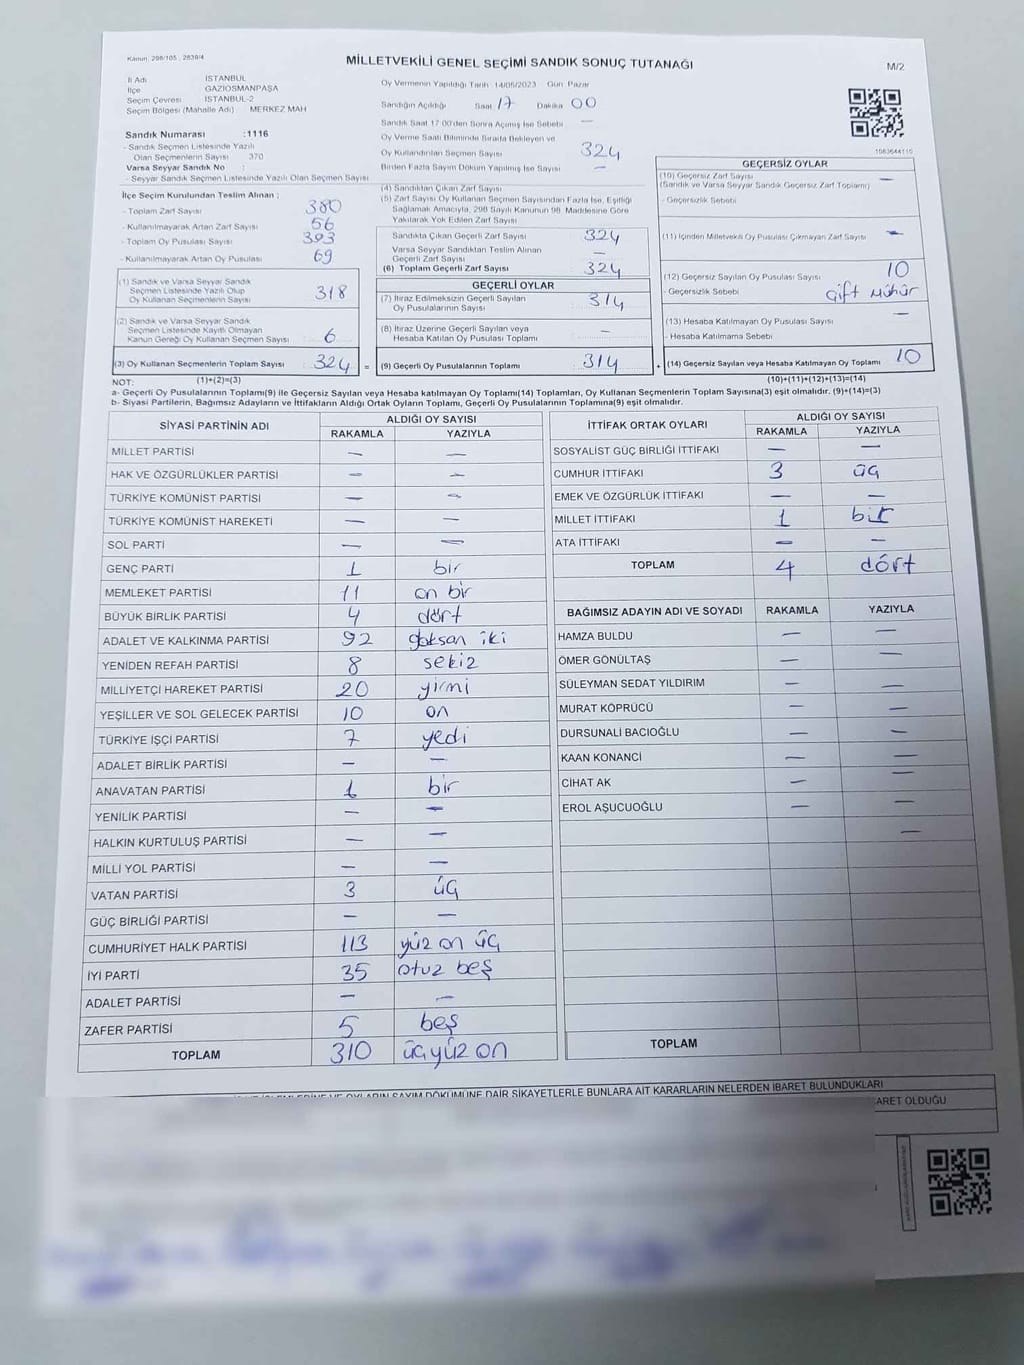 Kanun: 298/105 , 2839/4
MİLLETVEKİLİ GENEL SEÇİMİ SANDIK SONUÇ TUTANAĞI
M/2
İl Adı İSTANBUL
İlçe GAZİOSMANPAŞA
Seçim Çevresi İSTANBUL-2
Seçim Bölgesi (Mahalle Adı) : MERKEZ MAH
Sandık Numarası :1116
- Sandık Seçmen Listesinde Yazılı
Olan Seçmenlerin Sayısı 370
Varsa Seyyar Sandık No :
- Seyyar Sandık Seçmen Listesinde Yazılı Olan Seçmen Sayısı
Oy Vermenin Yapıldığı Tarih 14/05/2023 Gün Pazar
Sandığın Açıldığı Saat 17 Dakika 00
Sandık Saat 17:00'den Sonra Açılmış İse Sebebi —
Oy Verme Saati Bitiminde Sırada Bekleyen ve
Oy Kullandırılan Seçmen Sayısı 324
Birden Fazla Sayım Döküm Yapılmış İse Sayısı —
1083644110
İlçe Seçim Kurulundan Teslim Alınan ;
- Toplam Zarf Sayısı 380
- Kullanılmayarak Artan Zarf Sayısı 56
- Toplam Oy Pusulası Sayısı 393
- Kullanılmayarak Artan Oy Pusulası 69
(1) Sandık ve Varsa Seyyar Sandık
Seçmen Listesinde Yazılı Olup
Oy Kullanan Seçmenlerin Sayısı 318
(2) Sandık ve Varsa Seyyar Sandık
Seçmen Listesinde Kayıtlı Olmayan
Kanun Gereği Oy Kullanan Seçmen Sayısı 6
(3) Oy Kullanan Seçmenlerin Toplam Sayısı 324 =
(4) Sandıktan Çıkan Zarf Sayısı
(5) Zarf Sayısı Oy Kullanan Seçmen Sayısından Fazla İse, Eşitliği
Sağlamak Amacıyla, 298 Sayılı Kanunun 98. Maddesine Göre
Yakılarak Yok Edilen Zarf Sayısı
Sandıkta Çıkan Geçerli Zarf Sayısı 324
Varsa Seyyar Sandıktan Teslim Alınan
Geçerli Zarf Sayısı —
(6) Toplam Geçerli Zarf Sayısı 324
GEÇERLİ OYLAR
(7) İtiraz Edilmeksizin Geçerli Sayılan
Oy Pusulalarının Sayısı 314
(8) İtiraz Üzerine Geçerli Sayılan veya
Hesaba Katılan Oy Pusulası Toplamı —
(9) Geçerli Oy Pusulalarının Toplamı 314 +
GEÇERSİZ OYLAR
(10) Geçersiz Zarf Sayısı —
(Sandık ve Varsa Seyyar Sandık Geçersiz Zarf Toplamı)
- Geçersizlik Sebebi
(11) İçinden Milletvekili Oy Pusulası Çıkmayan Zarf Sayısı —
(12) Geçersiz Sayılan Oy Pusulası Sayısı 10
- Geçersizlik Sebebi Çift Mühür
(13) Hesaba Katılmayan Oy Pusulası Sayısı —
- Hesaba Katılmama Sebebi
(14) Geçersiz Sayılan veya Hesaba Katılmayan Oy Toplamı 10
NOT: (1)+(2)=(3)
(10)+(11)+(12)+(13)=(14)
a- Geçerli Oy Pusulalarının Toplamı(9) ile Geçersiz Sayılan veya Hesaba katılmayan Oy Toplamı(14) Toplamları, Oy Kullanan Seçmenlerin Toplam Sayısına(3) eşit olmalıdır. (9)+(14)=(3)
b- Siyasi Partilerin, Bağımsız Adayların ve İttifakların Aldığı Ortak Oyların Toplamı, Geçerli Oy Pusulalarının Toplamına(9) eşit olmalıdır.
SİYASİ PARTİNİN ADI ALDIĞI OY SAYISI
RAKAMLA YAZIYLA
MİLLET PARTİSİ — —
HAK VE ÖZGÜRLÜKLER PARTİSİ — —
TÜRKİYE KOMÜNİST PARTİSİ — —
TÜRKİYE KOMÜNİST HAREKETİ — —
SOL PARTİ — —
GENÇ PARTİ 1 bir
MEMLEKET PARTİSİ 11 on bir
BÜYÜK BİRLİK PARTİSİ 4 dört
ADALET VE KALKINMA PARTİSİ 92 doksan iki
YENİDEN REFAH PARTİSİ 8 sekiz
MİLLİYETÇİ HAREKET PARTİSİ 20 yirmi
YEŞİLLER VE SOL GELECEK PARTİSİ 10 on
TÜRKİYE İŞÇİ PARTİSİ 7 yedi
ADALET BİRLİK PARTİSİ — —
ANAVATAN PARTİSİ 1 bir
YENİLİK PARTİSİ — —
HALKIN KURTULUŞ PARTİSİ — —
MİLLİ YOL PARTİSİ — —
VATAN PARTİSİ 3 üç
GÜÇ BİRLİĞİ PARTİSİ — —
CUMHURİYET HALK PARTİSİ 113 yüz on üç
İYİ PARTİ 35 otuz beş
ADALET PARTİSİ — —
ZAFER PARTİSİ 5 beş
TOPLAM 310 üçyüz on
İTTİFAK ORTAK OYLARI ALDIĞI OY SAYISI
RAKAMLA YAZIYLA
SOSYALİST GÜÇ BİRLİĞİ İTTİFAKI — —
CUMHUR İTTİFAKI 3 üç
EMEK VE ÖZGÜRLÜK İTTİFAKI — —
MİLLET İTTİFAKI 1 bir
ATA İTTİFAKI — —
TOPLAM 4 dört
BAĞIMSIZ ADAYIN ADI VE SOYADI RAKAMLA YAZIYLA
HAMZA BULDU — —
ÖMER GÖNÜLTAŞ — —
SÜLEYMAN SEDAT YILDIRIM — —
MURAT KÖPRÜCÜ — —
DURSUNALİ BACIOĞLU — —
KAAN KONANCİ — —
CİHAT AK — —
EROL AŞUCUOĞLU — —
—
TOPLAM
OYLARIN SAYIM DÖKÜMÜNE DAİR ŞİKAYETLERLE BUNLARA AİT KARARLARIN NELERDEN İBARET BULUNDUKLARI
OLDUĞU